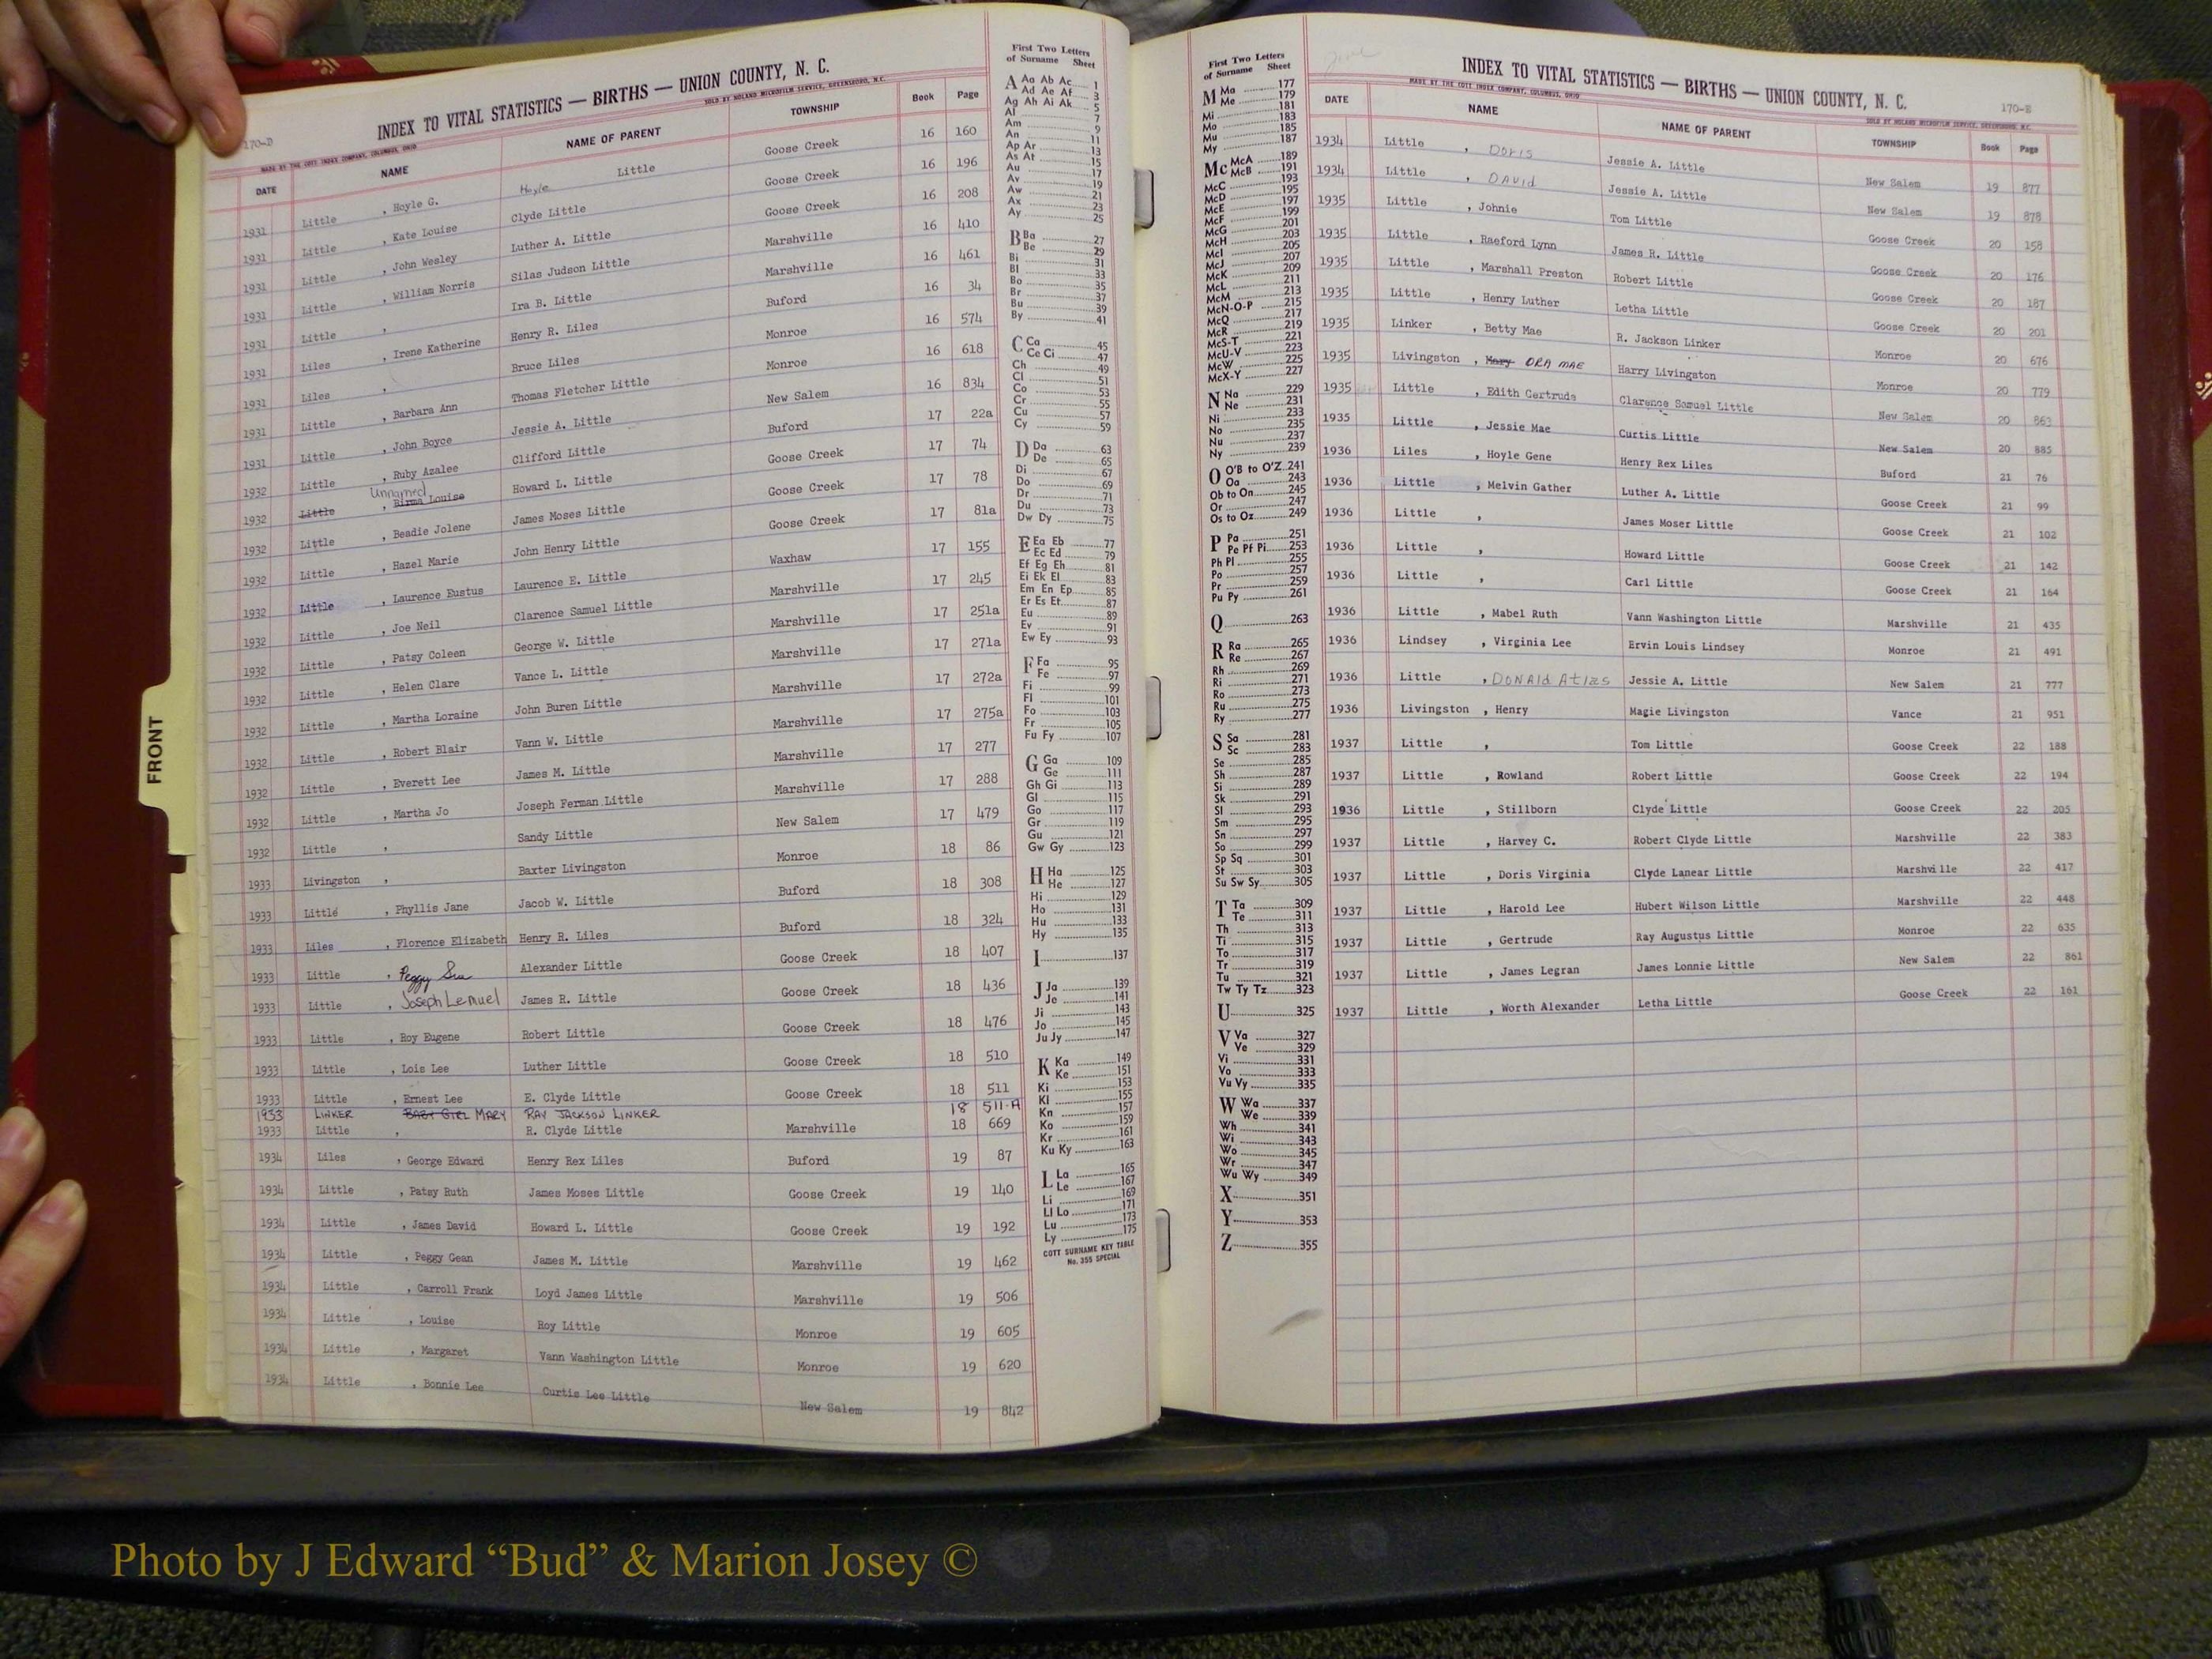 170-D
INDEX TO VITAL STATISTICS — BIRTHS — UNION COUNTY, N. C.
MADE BY THE COTT INDEX COMPANY, COLUMBUS, OHIO SOLD BY NOLAND MICROFILM SERVICE, GREENSBORO, N.C.
DATE NAME NAME OF PARENT TOWNSHIP Book Page
1931 Little , Hoyle G. Hoyle Little Goose Creek 16 160
1931 Little , Kate Louise Clyde Little Goose Creek 16 196
1931 Little , John Wesley Luther A. Little Goose Creek 16 208
1931 Little , William Norris Silas Judson Little Marshville 16 410
1931 Little , Ira B. Little Marshville 16 461
1931 Liles , Irene Katherine Henry R. Liles Buford 16 34
1931 Liles , Bruce Liles Monroe 16 574
1931 Little , Barbara Ann Thomas Fletcher Little Monroe 16 618
1931 Little , John Boyce Jessie A. Little New Salem 16 834
1932 Little , Ruby Azalee Clifford Little Buford 17 22a
Unnamed
1932 Little , Birma Louise Howard L. Little Goose Creek 17 74
1932 Little , Beadie Jolene James Moses Little Goose Creek 17 78
1932 Little , Hazel Marie John Henry Little Goose Creek 17 81a
1932 Little , Laurence Eustus Laurence E. Little Waxhaw 17 155
1932 Little , Joe Neil Clarence Samuel Little Marshville 17 245
1932 Little , Patsy Coleen George W. Little Marshville 17 251a
1932 Little , Helen Clare Vance L. Little Marshville 17 271a
1932 Little , Martha Loraine John Buren Little Marshville 17 272a
1932 Little , Robert Blair Vann W. Little Marshville 17 275a
1932 Little , Everett Lee James M. Little Marshville 17 277
1932 Little , Martha Jo Joseph Ferman Little Marshville 17 288
1932 Little , Sandy Little New Salem 17 479
1933 Livingston , Baxter Livingston Monroe 18 86
1933 Little , Phyllis Jane Jacob W. Little Buford 18 308
1933 Liles , Florence Elizabeth Henry R. Liles Buford 18 324
1933 Little , Peggy Sue Alexander Little Goose Creek 18 407
1933 Little , Joseph Lemuel James R. Little Goose Creek 18 436
1933 Little , Roy Eugene Robert Little Goose Creek 18 476
1933 Little , Lois Lee Luther Little Goose Creek 18 510
1933 Little , Ernest Lee E. Clyde Little Goose Creek 18 511
1933 LINKER BABY GIRL MARY RAY JACKSON LINKER 18 511-A
1933 Little , R. Clyde Little Marshville 18 669
1934 Liles , George Edward Henry Rex Liles Buford 19 87
1934 Little , Patsy Ruth James Moses Little Goose Creek 19 140
1934 Little , James David Howard L. Little Goose Creek 19 192
1934 Little , Peggy Gean James M. Little Marshville 19 462
1934 Little , Carroll Frank Loyd James Little Marshville 19 506
1934 Little , Louise Roy Little Monroe 19 605
1934 Little , Margaret Vann Washington Little Monroe 19 620
1934 Little , Bonnie Lee Curtis Lee Little New Salem 19 842
FRONT
First Two Letters
of Surname Sheet
A Aa Ab Ac 1
Ad Ae Af 3
Ag Ah Ai Ak 5
Al 7
Am 9
An 11
Ap Ar 13
As At 15
Au 17
Av 19
Aw 21
Ax 23
Ay 25
B Ba 27
Be 29
Bi 31
Bl 33
Bo 35
Br 37
Bu 39
By 41
C Ca 45
Ce Ci 47
Ch 49
Cl 51
Co 53
Cr 55
Cu 57
Cy 59
D Da 63
De 65
Di 67
Do 69
Dr 71
Du 73
Dw Dy 75
E Ea Eb 77
Ec Ed 79
Ef Eg Eh 81
Ei Ek El 83
Em En Ep 85
Er Es Et 87
Eu 89
Ev 91
Ew Ey 93
F Fa 95
Fe 97
Fi 99
Fl 101
Fo 103
Fr 105
Fu Fy 107
G Ga 109
Ge 111
Gh Gi 113
Gl 115
Go 117
Gr 119
Gu 121
Gw Gy 123
H Ha 125
He 127
Hi 129
Ho 131
Hu 133
Hy 135
I 137
J Ja 139
Je 141
Ji 143
Jo 145
Ju Jy 147
K Ka 149
Ke 151
Ki 153
Kl 155
Kn 157
Ko 159
Kr 161
Ku Ky 163
L La 165
Le 167
Li 169
Ll Lo 171
Lu 173
Ly 175
COTT SURNAME KEY TABLE
No. 355 SPECIAL
First Two Letters
of Surname Sheet
M Ma 177
Me 179
Mi 181
Mo 183
Mu 185
My 187
Mc McA 189
McB 191
McC 193
McD 195
McE 197
McF 199
McG 201
McH 203
McI 205
McJ 207
McK 209
McL 211
McM 213
McN-O-P 215
McQ 217
McR 219
McS-T 221
McU-V 223
McW 225
McX-Y 227
N Na 229
Ne 231
Ni 233
No 235
Nu 237
Ny 239
O O'B to O'Z 241
Oa 243
Ob to On 245
Or 247
Os to Oz 249
P Pa 251
Pe Pf Pi 253
Ph Pl 255
Po 257
Pr 259
Pu Py 261
Q 263
R Ra 265
Re 267
Rh 269
Ri 271
Ro 273
Ru 275
Ry 277
S Sa 281
Sc 283
Se 285
Sh 287
Si 289
Sk 291
Sl 293
Sm 295
Sn 297
So 299
Sp Sq 301
St 303
Su Sw Sy 305
T Ta 309
Te 311
Th 313
Ti 315
To 317
Tr 319
Tu 321
Tw Ty Tz 323
U 325
V Va 327
Ve 329
Vi 331
Vo 333
Vu Vy 335
W Wa 337
We 339
Wh 341
Wi 343
Wo 345
Wr 347
Wu Wy 349
X 351
Y 353
Z 355
INDEX TO VITAL STATISTICS — BIRTHS — UNION COUNTY, N. C.
170-E
MADE BY THE COTT INDEX COMPANY, COLUMBUS, OHIO SOLD BY NOLAND MICROFILM SERVICE, GREENSBORO, N.C.
DATE NAME NAME OF PARENT TOWNSHIP Book Page
1934 Little , Doris Jessie A. Little New Salem 19 877
1934 Little , DAVid Jessie A. Little New Salem 19 878
1935 Little , Johnie Tom Little Goose Creek 20 158
1935 Little , Raeford Lynn James R. Little Goose Creek 20 176
1935 Little , Marshall Preston Robert Little Goose Creek 20 187
1935 Little , Henry Luther Letha Little Goose Creek 20 201
1935 Linker , Betty Mae R. Jackson Linker Monroe 20 676
1935 Livingston , Mary ORA MAE Harry Livingston Monroe 20 779
1935 Little , Edith Gertrude Clarence Samuel Little New Salem 20 863
1935 Little , Jessie Mae Curtis Little New Salem 20 885
1936 Liles , Hoyle Gene Henry Rex Liles Buford 21 76
1936 Little , Melvin Gather Luther A. Little Goose Creek 21 99
1936 Little , James Moser Little Goose Creek 21 102
1936 Little , Howard Little Goose Creek 21 142
1936 Little , Carl Little Goose Creek 21 164
1936 Little , Mabel Ruth Vann Washington Little Marshville 21 435
1936 Lindsey , Virginia Lee Ervin Louis Lindsey Monroe 21 491
1936 Little , DONAld Atlas Jessie A. Little New Salem 21 777
1936 Livingston , Henry Magie Livingston Vance 21 951
1937 Little , Tom Little Goose Creek 22 188
1937 Little , Rowland Robert Little Goose Creek 22 194
1936 Little , Stillborn Clyde Little Goose Creek 22 205
1937 Little , Harvey C. Robert Clyde Little Marshville 22 383
1937 Little , Doris Virginia Clyde Lanear Little Marshville 22 417
1937 Little , Harold Lee Hubert Wilson Little Marshville 22 448
1937 Little , Gertrude Ray Augustus Little Monroe 22 635
1937 Little , James Legran James Lonnie Little New Salem 22 861
1937 Little , Worth Alexander Letha Little Goose Creek 22 161
Photo by J Edward “Bud” & Marion Josey ©